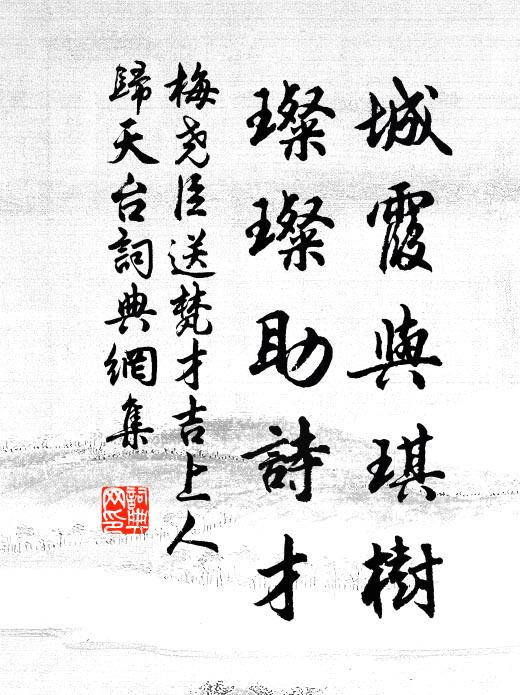 城霞與琪樹
璨璨助詩才
梅尧臣送梵才吉上人
歸天台詞典網集
詞典网印